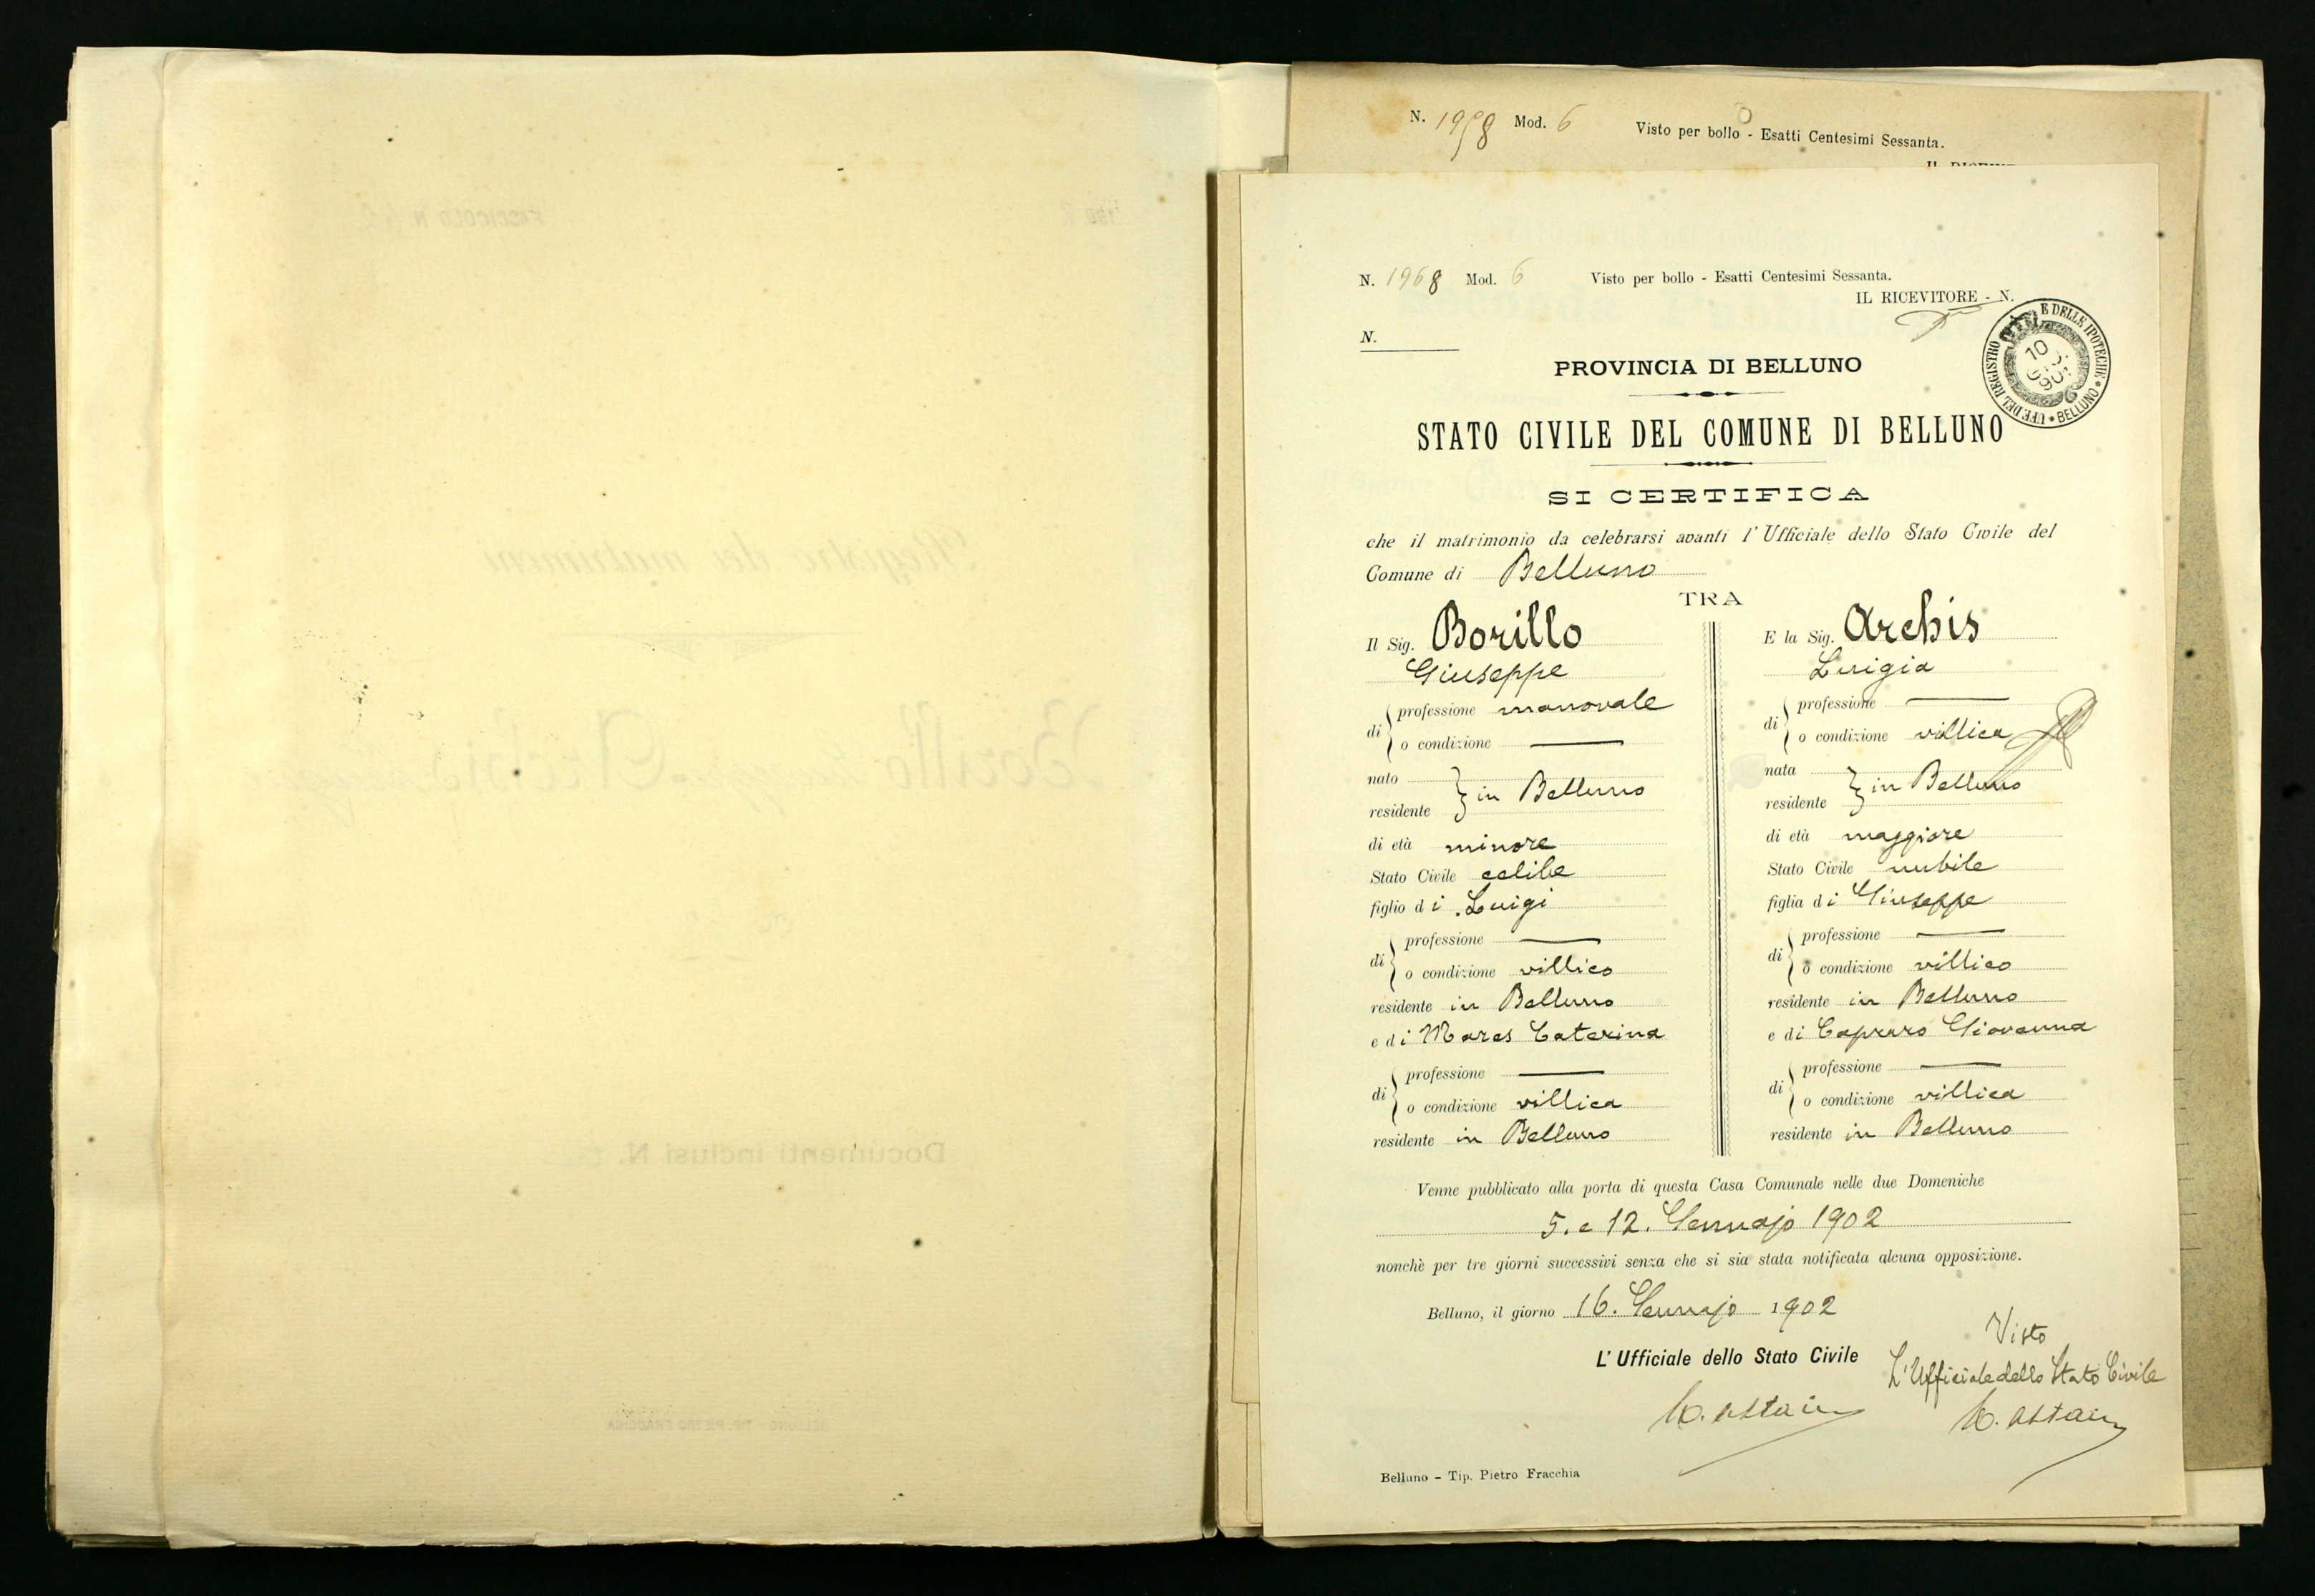 N. 1958 Mod. 6 Visto per bollo - Esatti Centesimi Sessanta.
N. 1968 Mod. 6 Visto per bollo - Esatti Centesimi Sessanta.
IL RICEVITORE - N.
UFF. DEL REGISTRO E DELLE IPOTECHE * BELLUNO *
N.
PROVINCIA DI BELLUNO
STATO CIVILE DEL COMUNE DI BELLUNO
SI CERTIFICA
che il matrimonio da celebrarsi avanti l'Ufficiale dello Stato Civile del
Comune di Belluno
TRA
Il Sig. Borillo
Giuseppe
di professione manovale
o condizione
nato
residente in Belluno
di età minore
Stato Civile celibe
figlio di Luigi
di professione
o condizione villico
residente in Belluno
e di Mares Caterina
di professione
o condizione villica
residente in Belluno
E la Sig. Archis
Luigia
di professione
o condizione villica
nata
residente in Belluno
di età maggiore
Stato Civile nubile
figlia di Giuseppe
di professione
o condizione villico
residente in Belluno
e di Capraro Giovanna
di professione
o condizione villica
residente in Belluno
Venne pubblicato alla porta di questa Casa Comunale nelle due Domeniche
5. e 12. Gennajo 1902
nonchè per tre giorni successivi senza che si sia stata notificata alcuna opposizione.
Belluno, il giorno 16. Gennajo 1902
L'Ufficiale dello Stato Civile
Visto
L'Ufficiale dello Stato Civile
Belluno - Tip. Pietro Fracchia